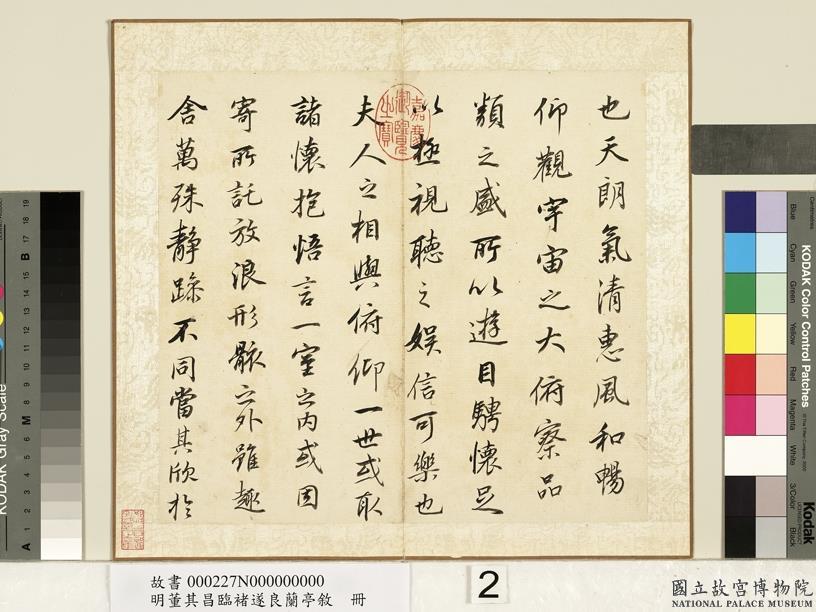 也天朗氣清惠風和暢
仰觀宇宙之大俯察品
類之盛所以遊目騁懷足
以極視聽之娛信可樂也
夫人之相與俯仰一世或取
諸懷抱悟言一室之內或因
寄所託放浪形骸之外雖趣
舍萬殊靜躁不同當其欣於
嘉慶御覽之寶
KODAK Gray Scale
A 1 2 3 4 5 6 M 8 9 10 11 12 13 14 15 B 17 18 19
KODAK Color Control Patches
Blue Cyan Green Yellow Red Magenta White 3/Color Black
Centimetres
Kodak
故書 000227N000000000
明董其昌臨褚遂良蘭亭敘 冊
2
國立故宮博物院
NATIONAL PALACE MUSEUM